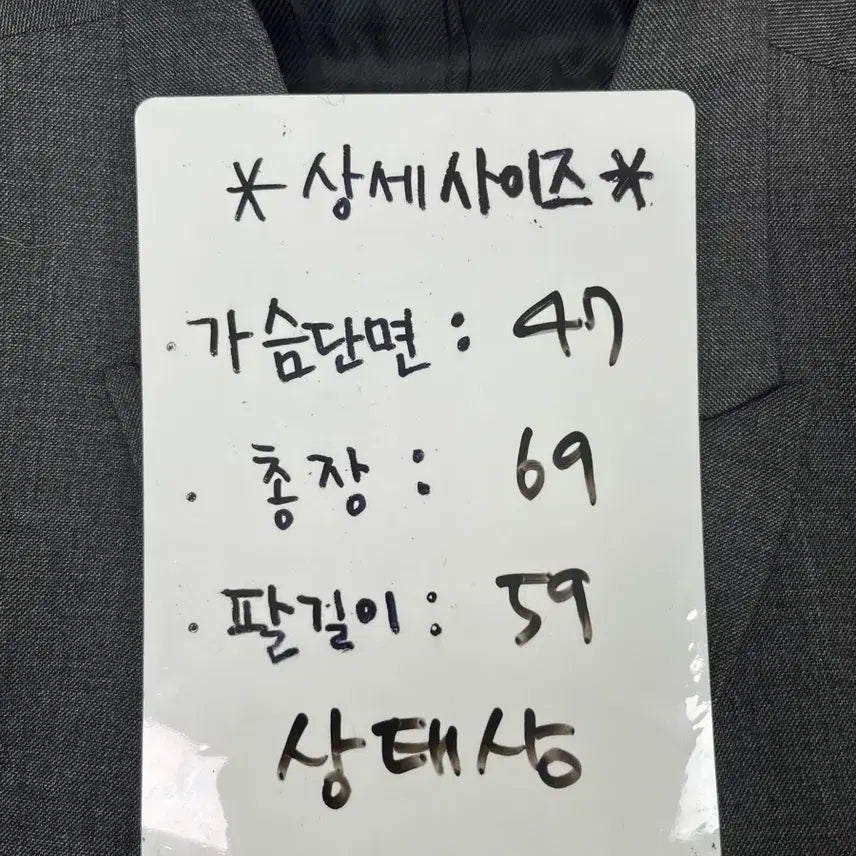 *상세사이즈*
· 가슴단면 : 47
· 총장 : 69
· 팔길이 : 59
상태상